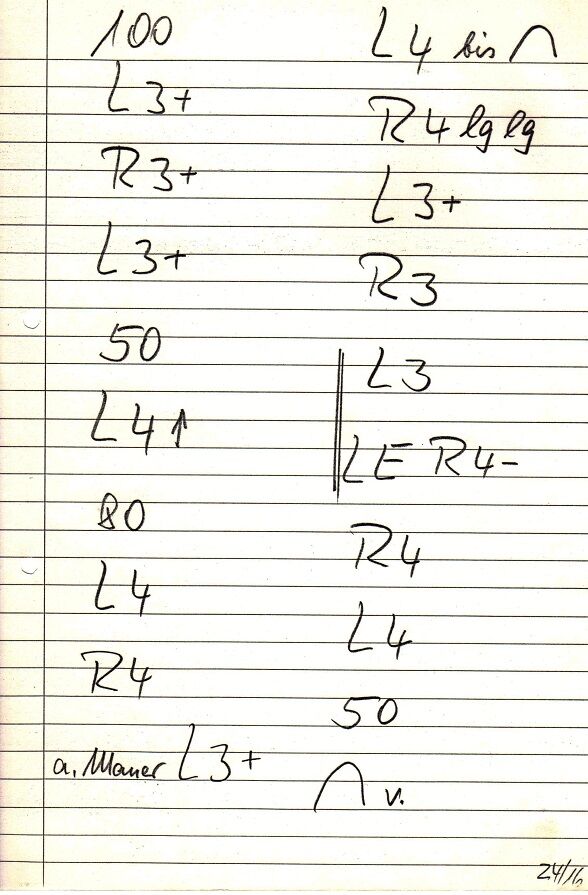 100
L3+
R3+
L3+
50
L4↑
80
L4
R4
a. Mauer L3+
L4 bis ⌒
R4 lg lg
L3+
R3
L3
LE R4-
R4
L4
50
⌒ v.